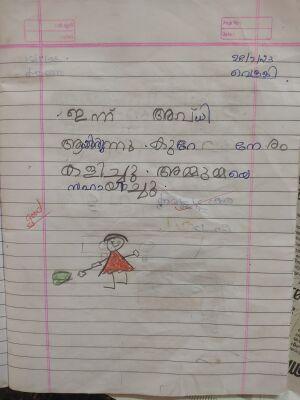 വെള്ളി
ഇന്ന് അവധി
ആയിരുന്നു. കുറേ നേരം
കളിച്ചു. അമ്മുമ്മയെ
സഹായിച്ചു.
good